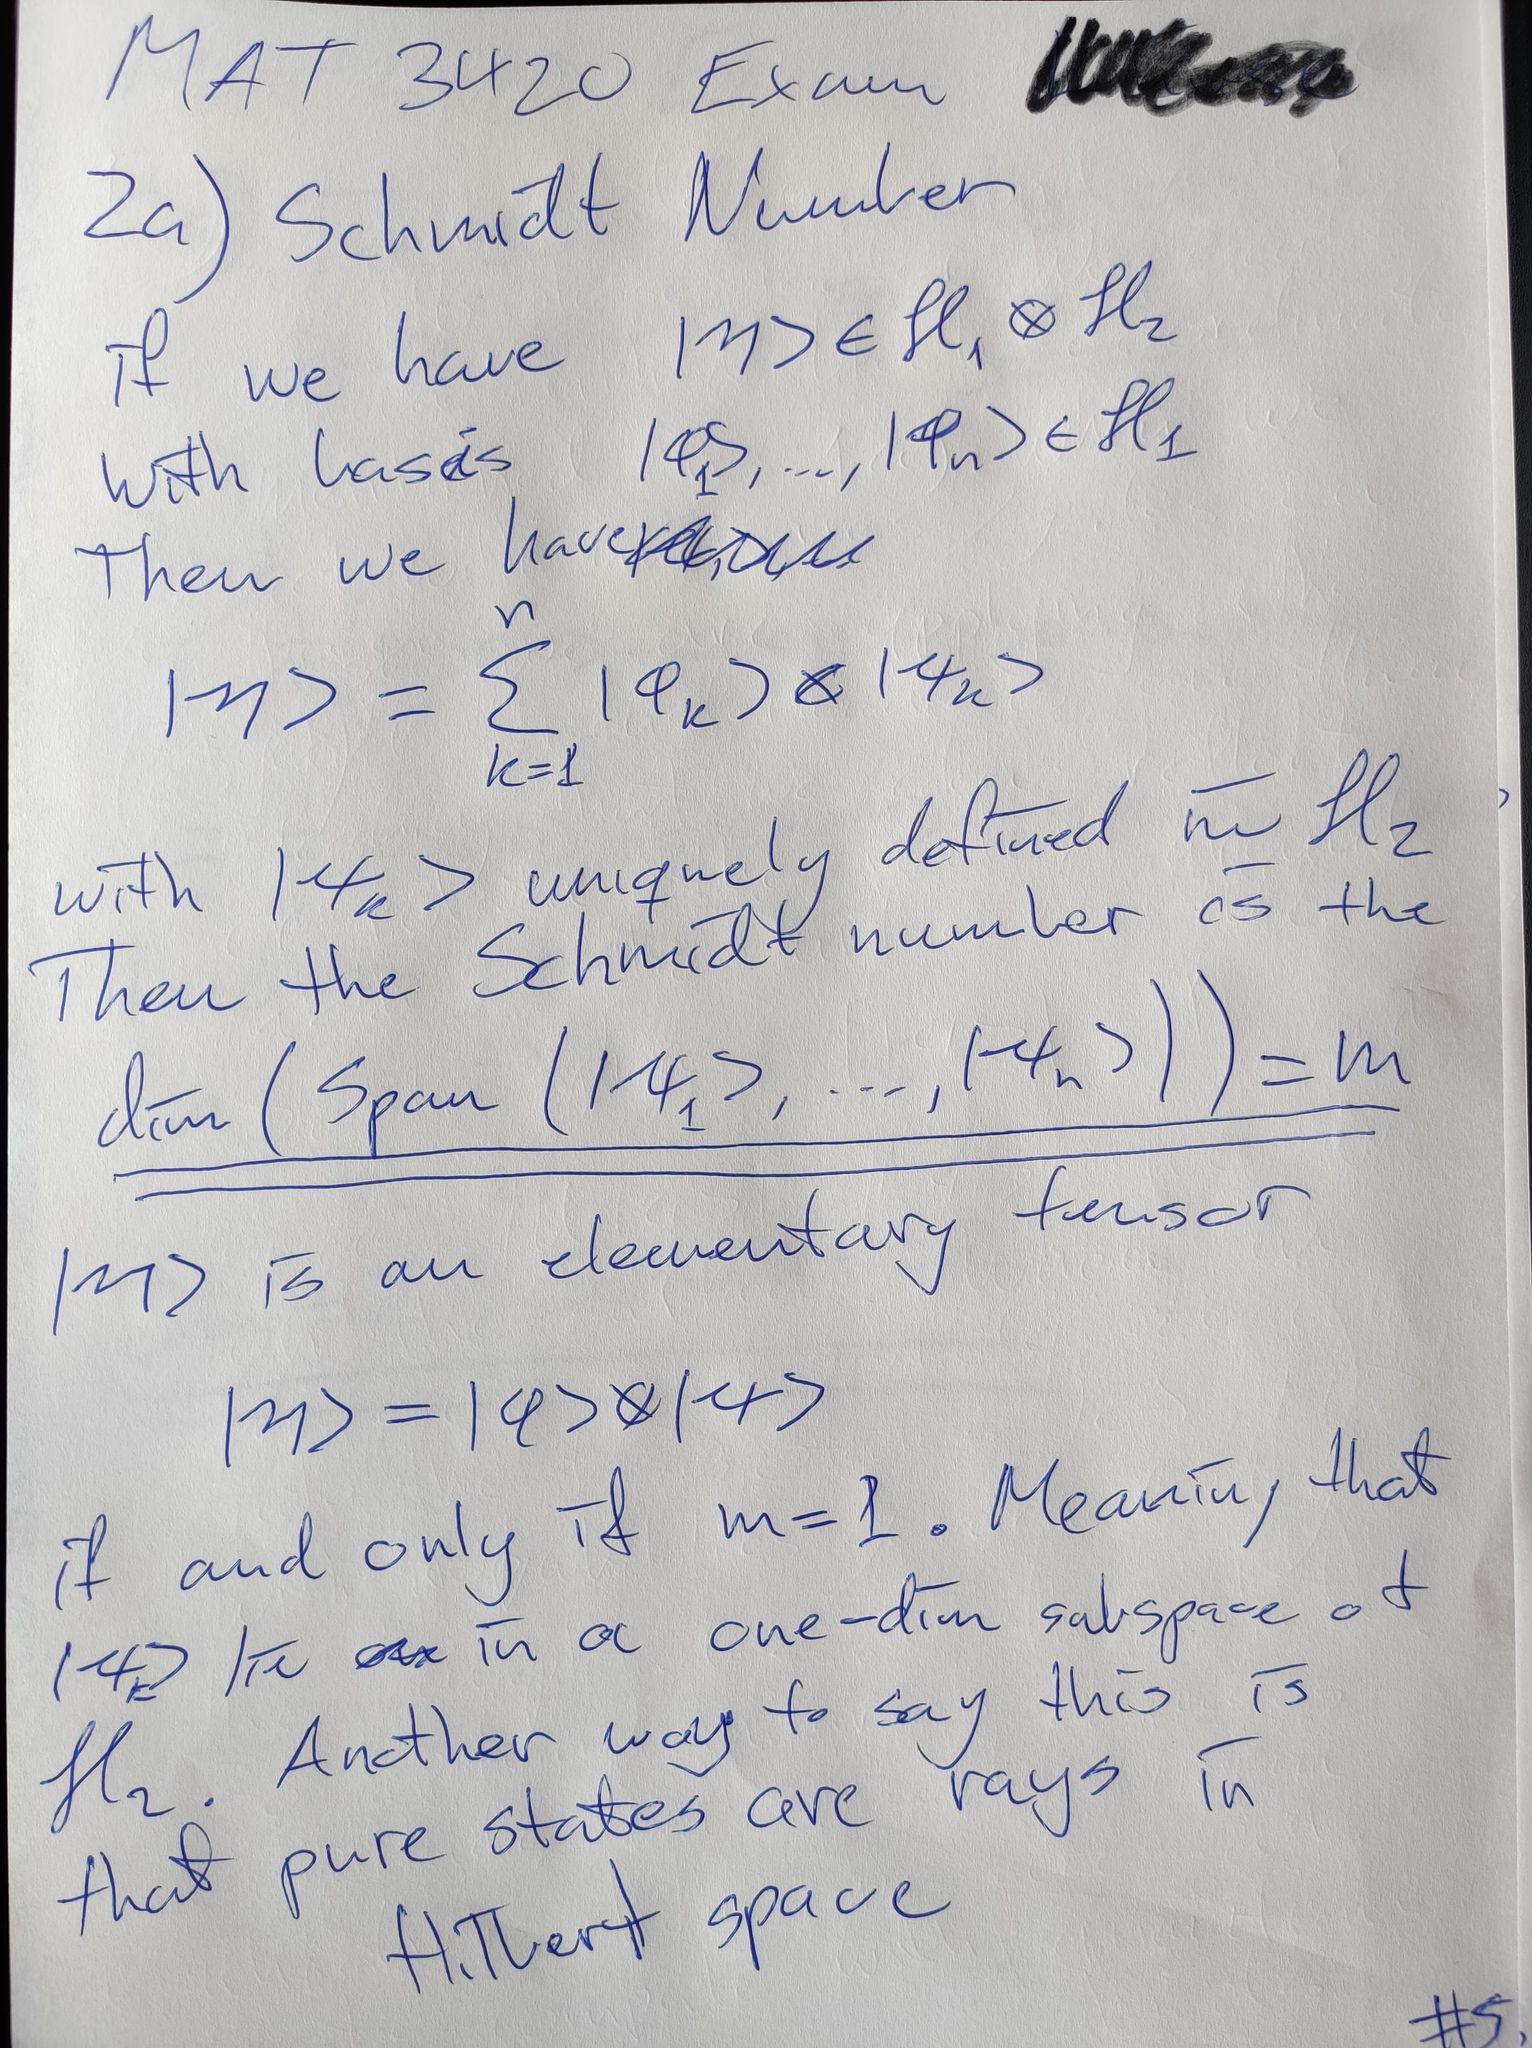 MAT 3420 Exam
2a) Schmidt Number
if we have |η> ∈ H₁ ⊗ H₂
with basis |φ₁>, ..., |φₙ> ∈ H₁
Then we have
|η> = ∑ₖ₌₁ⁿ |φₖ> ⊗ |ψₖ>
with |ψₖ> uniquely defined in H₂
Then the Schmidt number is the
dim(Span(|ψ₁>, ..., |ψₙ>)) = m
|η> is an elementary tensor
|η> = |φ> ⊗ |ψ>
if and only if m=1. Meaning that
|ψₖ> lie in a one-dim subspace of
H₂. Another way to say this is
that pure states are rays in
Hilbert space
#5.